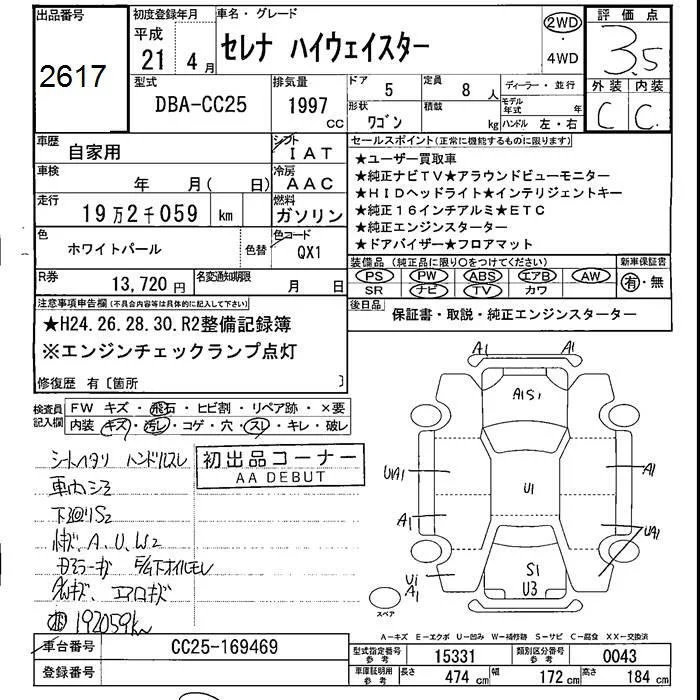 出品番号
2617
初度登録年月
平成
21 4月
車名・グレード
セレナ ハイウェイスター
2WD
・
4WD
評価点
3.5
外装 内装
C C
型式
DBA-CC25
排気量
1997
CC
ドア
5
定員
8 人
形状
ワゴン
積載
kg
ディーラー・並行
モデル年式 年
ハンドル 左・右
車歴
自家用
シフト
IAT
車検
年 月( 日)
冷房
AAC
走行
19万2千059 km
燃料
ガソリン
色
ホワイトパール
色替
色コード
QX1
R券
13,720円
名変通知期限
月 日
セールスポイント(正常に機能するものに限ります)
★ユーザー買取車
★純正ナビTV★アラウンドビューモニター
★HIDヘッドライト★インテリジェントキー
★純正16インチアルミ★ETC
★純正エンジンスターター
★ドアバイザー★フロアマット
装備品(純正品に限り○をつけてください)
PS PW ABS エアB AW
SR ナビ TV カワ
新車保証書
有・無
後日品
保証書・取説・純正エンジンスターター
注意事項申告欄(不具合内容等は具体的に記入して下さい)
★H24.26.28.30.R2整備記録簿
※エンジンチェックランプ点灯
修復歴 有〔箇所 〕
検査員記入欄
FW キズ・飛石・ヒビ割・リペア跡・×要
内装・キズ・汚レ・コゲ・穴・スレ・キレ・破レ
初出品コーナー
AA DEBUT
シートヘタリ ハンドルスレ
車内シミ
下廻りS2
キズ、A、U、W2
ドアミラーキズ E/G下オイルモレ
AWキズ、エアロキズ
192059km
A1 A1
A1S1
UA1
A1
U1
A1
UA1
S1
U3
U1
A1
スペア
A−キズ E−エクボ U−凹み W−補修跡 S−サビ C−腐食 XX−交換済
車台番号
CC25-169469
登録番号
型式指定番号
参考
15331
類別区分番号
参考
0043
車庫証明用
参考
長さ
474 cm
幅
172 cm
高さ
184 cm